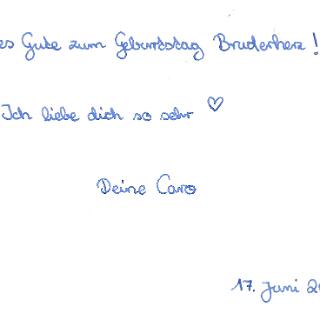 es Gute zum Geburtstag Bruderherz!
Ich liebe dich so sehr ♡
Deine Caro
17. Juni 20